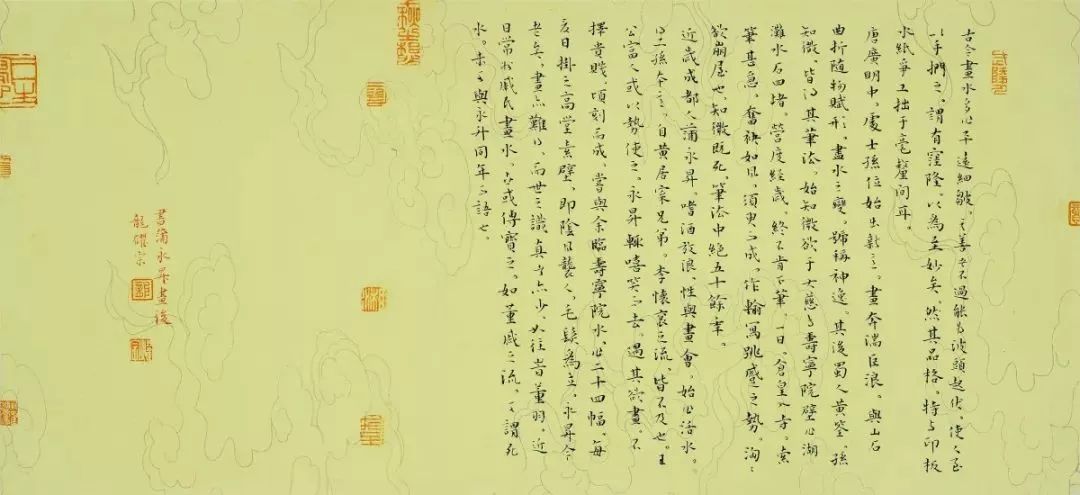 古今畫水多作平遠細皺。其善者不過能為波頭起伏。使人至
以手捫之。謂有窪隆。以為至妙矣。然其品格。特與印板
水紙爭工拙于毫釐間耳。
唐廣明中。處士孫位始出新意。畫奔湍巨浪。與山石
曲折隨物賦形。盡水之變。號稱神逸。其後蜀人黃筌、孫
知微、皆得其筆法。始知微欲于大慈寺壽寧院壁作湖
灘水石四堵。營度經歲。終不肯下筆。一日。倉皇入寺。索
筆甚急。奮袂如風。須臾而成。作輸寫跳蹙之勢。洶洶
欲崩屋也。知微既死。筆法中絕五十餘年。
近歲成都人蒲永昇。嗜酒放浪。性與畫會。始作活水。
得二孫本意。自黃居寀兄弟。李懷袞之流、皆不及也。王
公富人或以勢使之。永昇輒嘻笑而去。遇其欲畫。不
擇貴賤。頃刻而成。嘗與余臨壽寧院水。作二十四幅。每
夏日掛之高堂素壁。即陰風襲人。毛髮為立。永昇今
老矣。畫亦難得。而世之識真者亦少。如往者董羽。近
日常州戚氏畫水。世或傳寶之。如董戚之流。可謂死
水。未可與永昇同年而語也。
書蒲永昇畫後